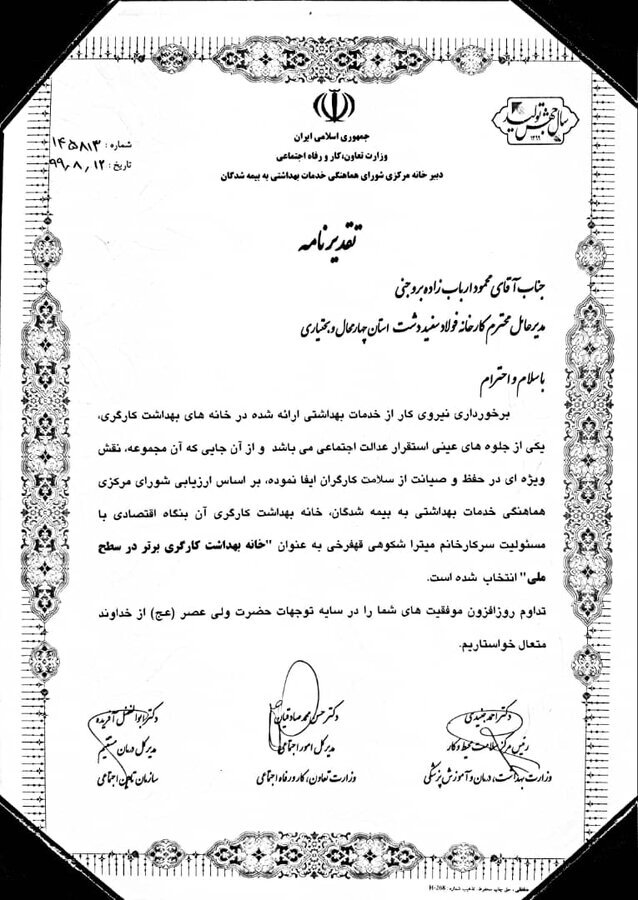 سال جهش تولید
۱۳۹۹
جمهوری اسلامی ایران
وزارت تعاون، کار و رفاه اجتماعی
دبیر خانه مرکزی شورای هماهنگی خدمات بهداشتی به بیمه شدگان
شماره : ۱۴۵۸۱۳
تاریخ : ۹۹،۸،۱۲
تقدیرنامه
جناب آقای محمود ارباب زاده بروجنی
مدیرعامل محترم کارخانه فولاد سفیددشت استان چهارمحال و بختیاری
با سلام و احترام
برخورداری نیروی کار از خدمات بهداشتی ارائه شده در خانه های بهداشت کارگری،
یکی از جلوه های عینی استقرار عدالت اجتماعی می باشد و از آن جایی که آن مجموعه، نقش
ویژه ای در حفظ و صیانت از سلامت کارگران ایفا نموده، بر اساس ارزیابی شورای مرکزی
هماهنگی خدمات بهداشتی به بیمه شدگان، خانه بهداشت کارگری آن بنگاه اقتصادی با
مسئولیت سرکارخانم میترا شکوهی قهفرخی به عنوان "خانه بهداشت کارگری برتر در سطح
ملی" انتخاب شده است.
تداوم روزافزون موفقیت های شما را در سایه توجهات حضرت ولی عصر (عج) از خداوند
متعال خواستاریم.
دکتر احمد جنیدی
رئیس مرکز سلامت محیط و کار
وزارت بهداشت، درمان و آموزش پزشکی
دکتر حسن محمد صادقیان
مدیر کل امور اجتماعی
وزارت تعاون، کار و رفاه اجتماعی
دکتر ابوالفضل آفریده
مدیر کل درمان مستقیم
سازمان تامین اجتماعی
حق چاپ محفوظ، تذهیب شماره : H-268